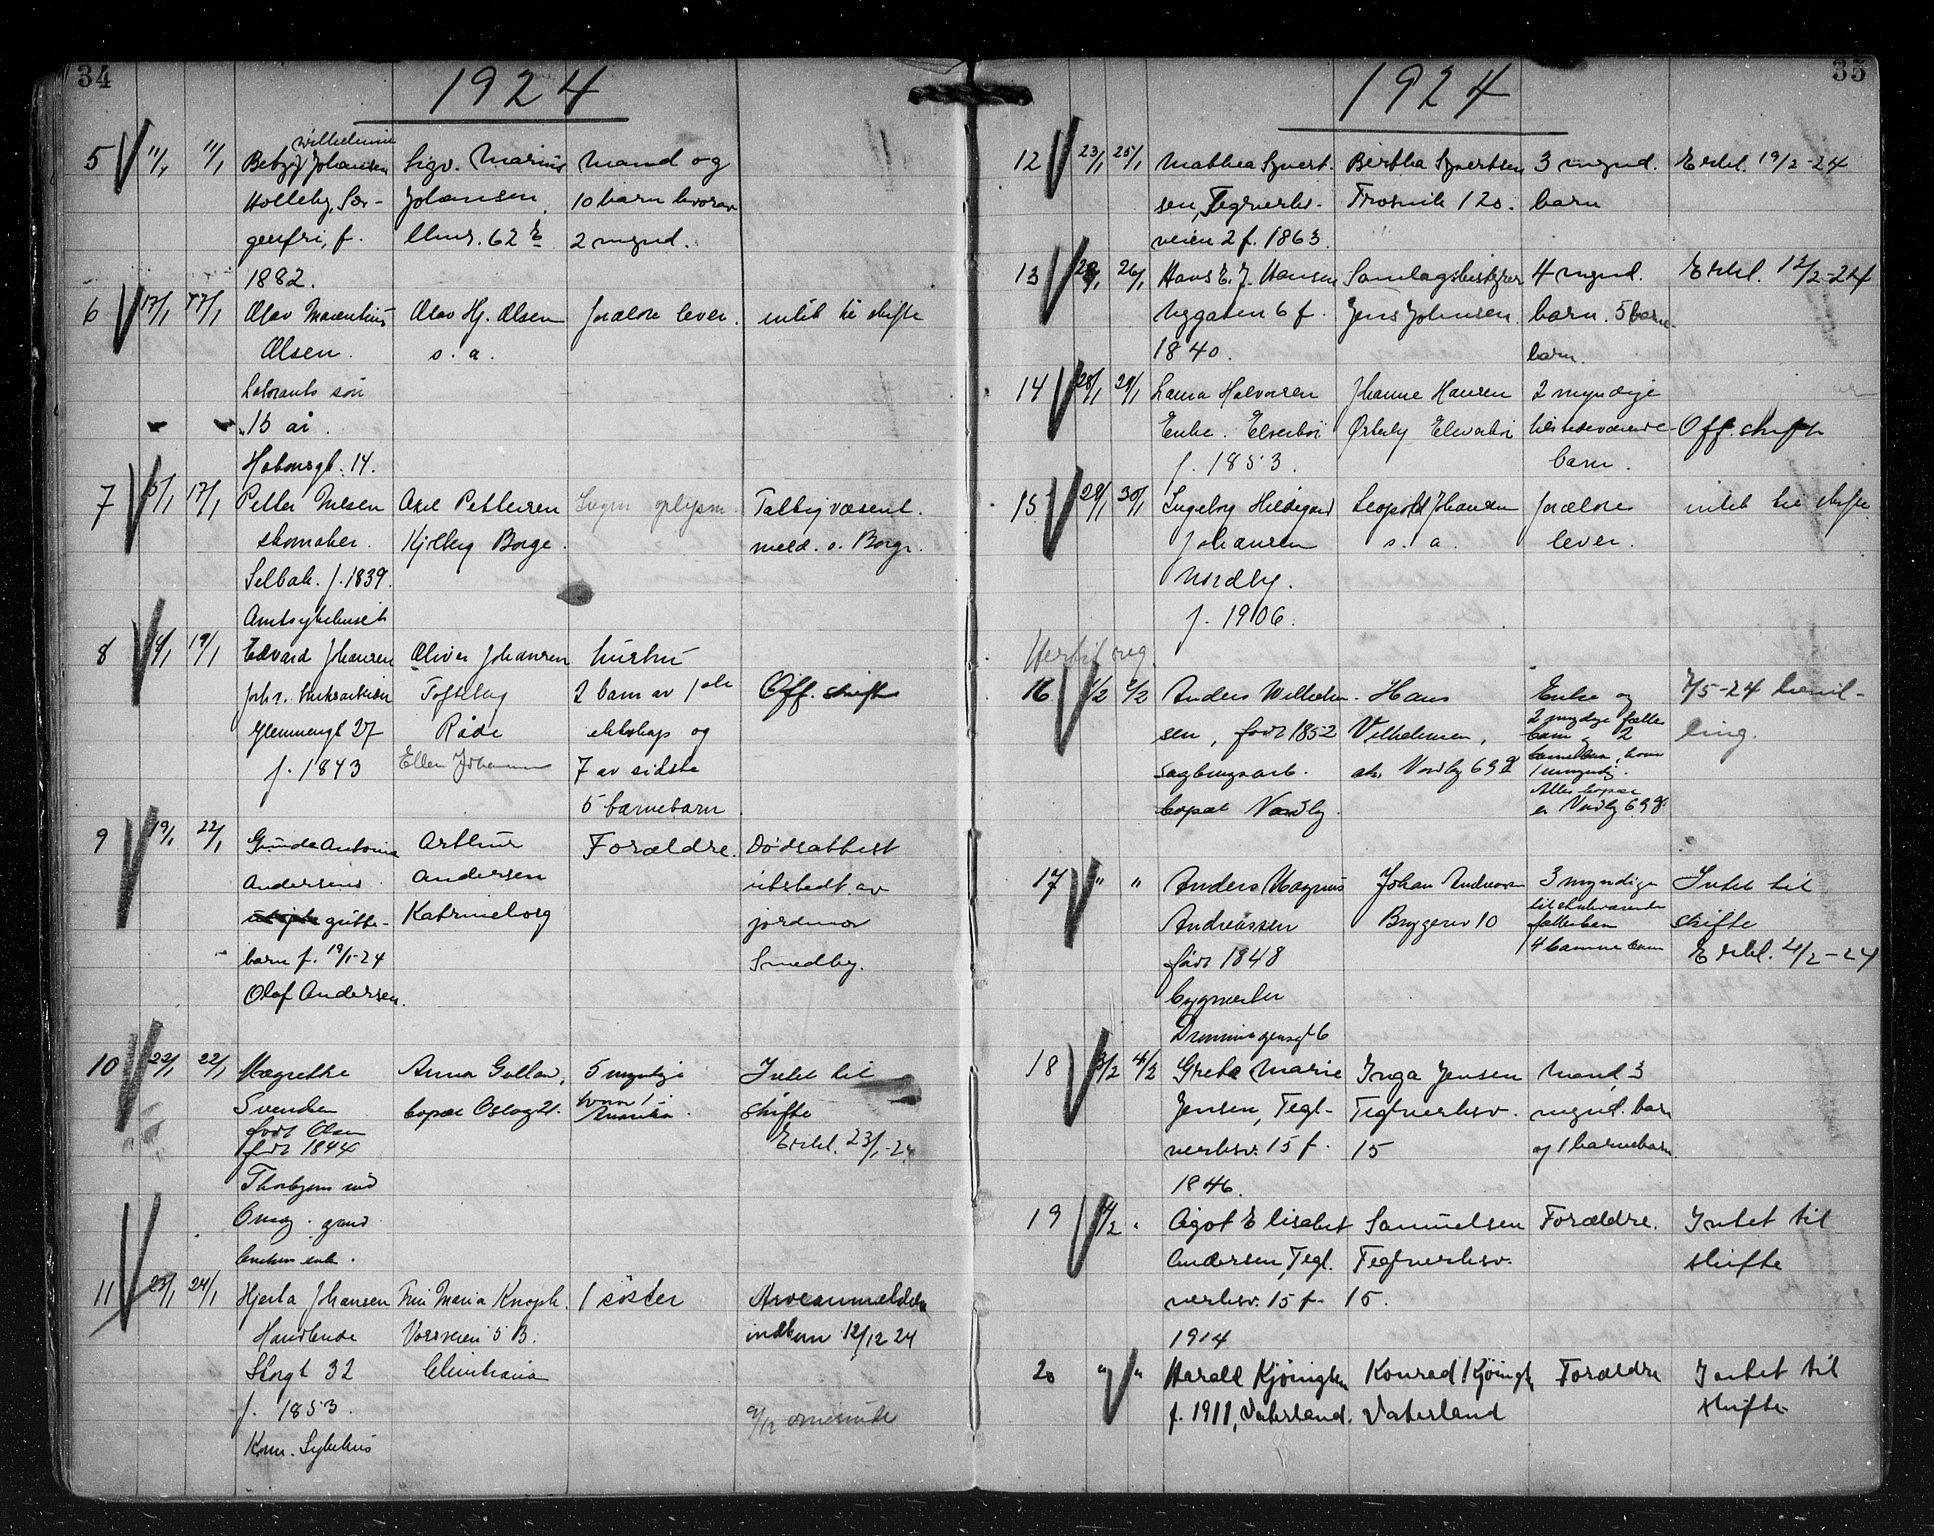 34
1924
5 11/1 11/1
Wilhelmine
Johansen
Holleby, Sor-
genfri, f.
1882.
Sigv. Marius
Johansen
62
Mand og
10 barn hvorav
2 mynd.
6 17/1 17/1
Olav Marentius
Olsen.
søn
15 år.
Habornsgt. 14.
Olav Hj. Olsen
s. a.
forældre lever.
intet til skifte
7 15/1 17/1
Petter Nilsen
skomaker.
Selbak. f. 1839.
Amtsykehuset
Axel Pettersen
Kjølberg Borge.
Ingen oplysn.
meld. o. Borge.
8 19/1
Edvard Johansen
Glemmengt 27
f. 1843
Oliver Johansen
Tofteberg
Råde
Ellen Johansen
hustru
2 barn av 1ste
ekteskap og
7 av sidste
5 barnebarn
Off. skifte
9 19/1 22/1
Gunda Antonie
Andersens
gutte-
barn f. 19/1-24
Olaf Andersen.
Arthur
Andersen
Katrineborg
Forældre.
Dødsattest
utstedt av
jordmor
Smedby.
10 22/1 22/1
Magrethe
Svendsen
født Olsen
født 1844
Onsøy.
enke.
Anna Gollan,
bopæl Oslog 21.
5 myndige
hvorav 1 i
Amerika.
Intet til
skifte
Erkl. 23/1-24
11 23/1 24/1
Hjerta Johansen
Handlende
Storgt 32
f. 1853.
Kom. Sykehus
Fru Maria Knoph.
Vossveien 5 B.
Christiania
1 søster
Arveanmeldelse
indkom 12/12 24
9/12
35
1924
12 23/1 25/1
Mathea Syvert-
sen, Teglverks-
veien 2 f. 1863.
Bertha Syvertsen
Trosvik 120.
3 mynd.
barn
Erkl. 19/2-24
13 26/1
Hans E. J. Hansen
Nygaten 6 f.
1840.
Samlagsbestyrer
Jens Johnsen.
4 mynd.
barn. 5 barne-
barn.
Erkl. 12/2-24
14 28/1 29/1
Laura Halvorsen
Enke.
f. 1853.
Johanne Hansen
Ørteby
2 myndige
tilstedeværende
barn.
Off. skifte
15 29/1 30/1
Ingeborg Hildegard
Johansen
Nordby.
f. 1906.
Leopold Johansen
s. a.
forældre
lever.
intet til skifte
Hertil reg.
16 1/2 2/2
Anders Wilhelm-
sen, født 1852
sagbrugsarb.
bopæl Nordby.
Hans
Vilhelmsen,
Nordby 69 g
Enke og
2 myndige fælles
barn og 2
barnebarn, hvorav
1 umyndig.
Alles bopæl
er Nordby 69 g.
7/5-24 bevil-
ling.
17 " "
Anders Magnus
Andreassen
født 1848
bygmester
Dronningensgt 6
Johan Andreassen
Bryggeriv 10
3 myndige
tilstedeværende
fællesbarn
4 barnebarn
Intet til
skifte
Erkl. 4/2-24
18 3/2 4/2
Grete Marie
Jensen, Tegl-
verksv. 15 f.
1846.
Inga Jensen
Teglverksv.
15
Mand, 3
mynd. barn
og 1 barnebarn.
19 4/2 "
Agot Elisabet
Andersen, Tegl.
verksv. 15 f.
1914
Samuelsen
Teglverksv.
15.
Forældre.
Intet til
skifte
20 " "
Harald Kjøingsen
f. 1911, Vaterland.
Konrad
Vaterland
Forældre
Intet til
skifte